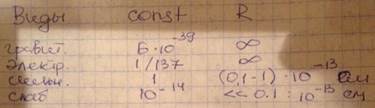 Виды const R
гравит. 6·10⁻³⁹ ∞
электр. 1/137 ∞
сильн. 1 (0,1-1)·10⁻¹³ см
слаб 10⁻¹⁴ <<0.1·10⁻¹³ см